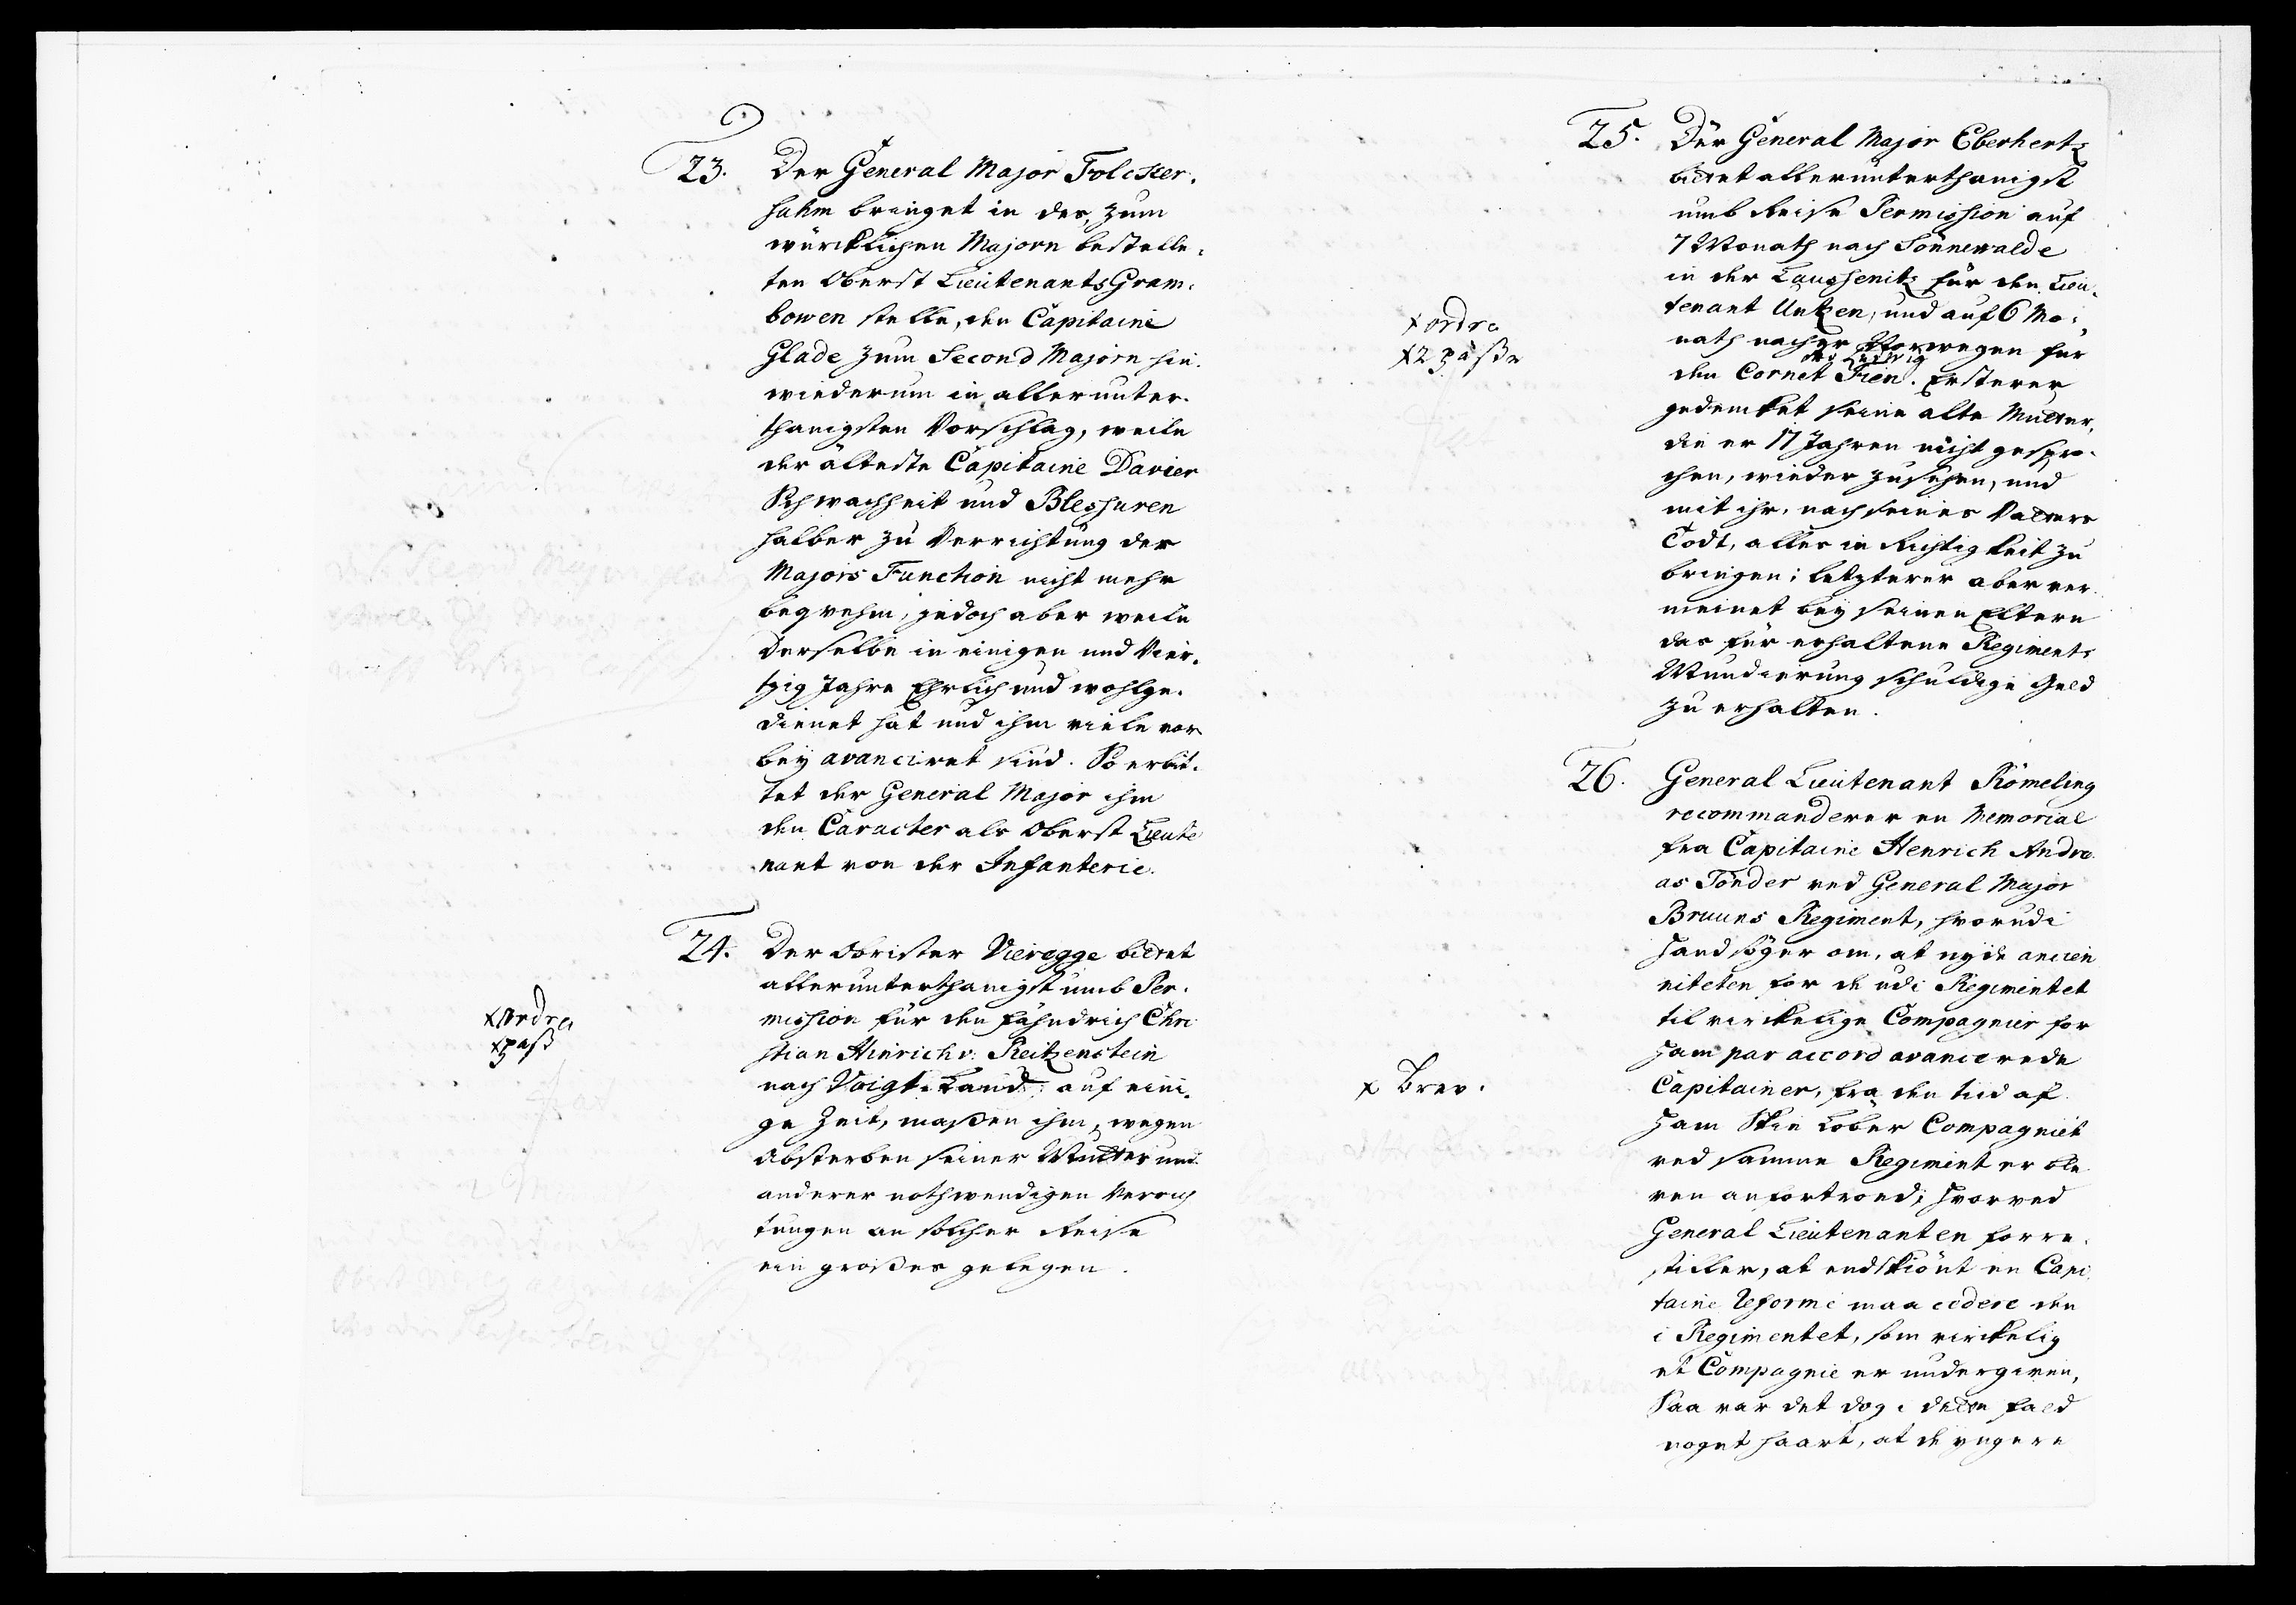 23. Der General Major Folcker-
sahm bringet in des, zum
würcklichen Majorn bestelle-
ten Oberst Lieutenants Gram-
bowen stelle, den Capitaine
Glade zum Second Majorn hin-
wiederum in allerunter-
thänigsten Vorschlag, weile
der älteste Capitaine Davier
Schwachheit und Blessuren
halber zu Verrichtung der
Majors Function nicht mehr
beqvehm, jedoch aber weile
derselbe in einigen und Vier-
tzig Jahre Ehrlich und wohl ge-
dienet hat und ihm viele vor
bey avanciret sind. So erbit-
tet der General Major ihm
den Caracter als Oberst Lieute
nant von der Infanterie.
24. Der Obrister Vieregge bittet
allerunterthänigst umb Per-
mission für den fähndrich Chri
stian Hinrich v: Reitzenstein
nach Voigt-Land auf eini-
ge Zeit, maßen ihm, wegen
Absterben seiner Mutter und
anderer nothwendigen Verrich
tungen an solcher Reise
ein großes gelegen.
x ordre
x paß
25. Der General Major Eberhertz
bittet allerunterthänigst
umb Reise Permission auf
7 Monath nach Sonnewalde
in der Laussenitz für den Lieu-
tenant Untzen, und auf 6 Mo-
nath nacher Norwegen für
den Cornet Fien. Ersterer
gedencket seine alte Mutter,
die er 17 Jahren nicht gespro-
chen, wieder zusehen, und
mit ihr, nach seines Vatters
Todt, alles in Richtigkeit zu
bringen; letzterer aber ver-
meinet bey seinen Eltern
das für erhaltene Regiments
Mundierung schuldige Geld
zu erhalten.
x ordre
x 2 päße
26. General Lieutenant Römeling
recommanderer en Memorial
fra Capitaine Henrich Andre
as Tönder ved General Major
Bruuns Regiment, hvorudi
hand söger om, at nyde ancien
niteten for de udi Regimentet
til virckelige Compagnier for
ham par accord avancerede
Capitainer, fra den tiid af
ham Compagniet
ved samme Regiment er ble
ven anfortroed; hvorved
General Lieutenanten forre-
stiller, at endskiönt en Capi
taine Reformé maa cedere den
i Regimentet, som virckelig
et Compagnie er undergiven,
Saa var det dog i dette fald
noget haart, at de yngere
x Brev.